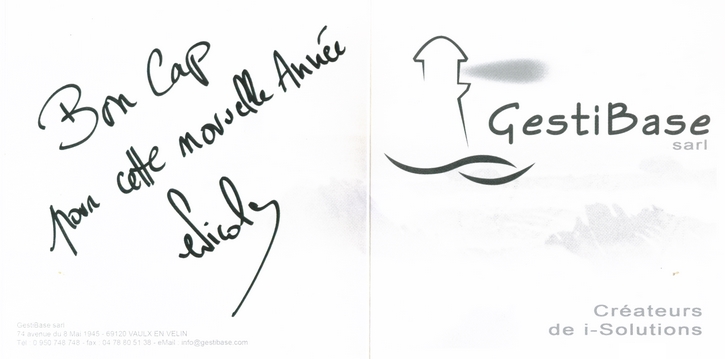 Bon Cap
pour cette nouvelle Année
Nicolas
GestiBase sarl
74 avenue du 8 Mai 1945 - 69120 VAULX EN VELIN
Tél : 0 950 748 748 - fax : 04 78 80 51 36 - eMail : info@gestibase.com
GestiBase
sarl
Créateurs
de i-Solutions